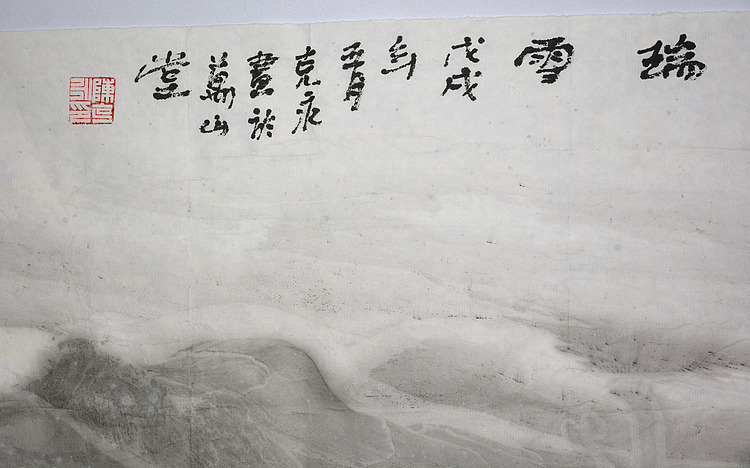 瑞
雪
戊戌
年
五月
克永
畫於
萬山
堂